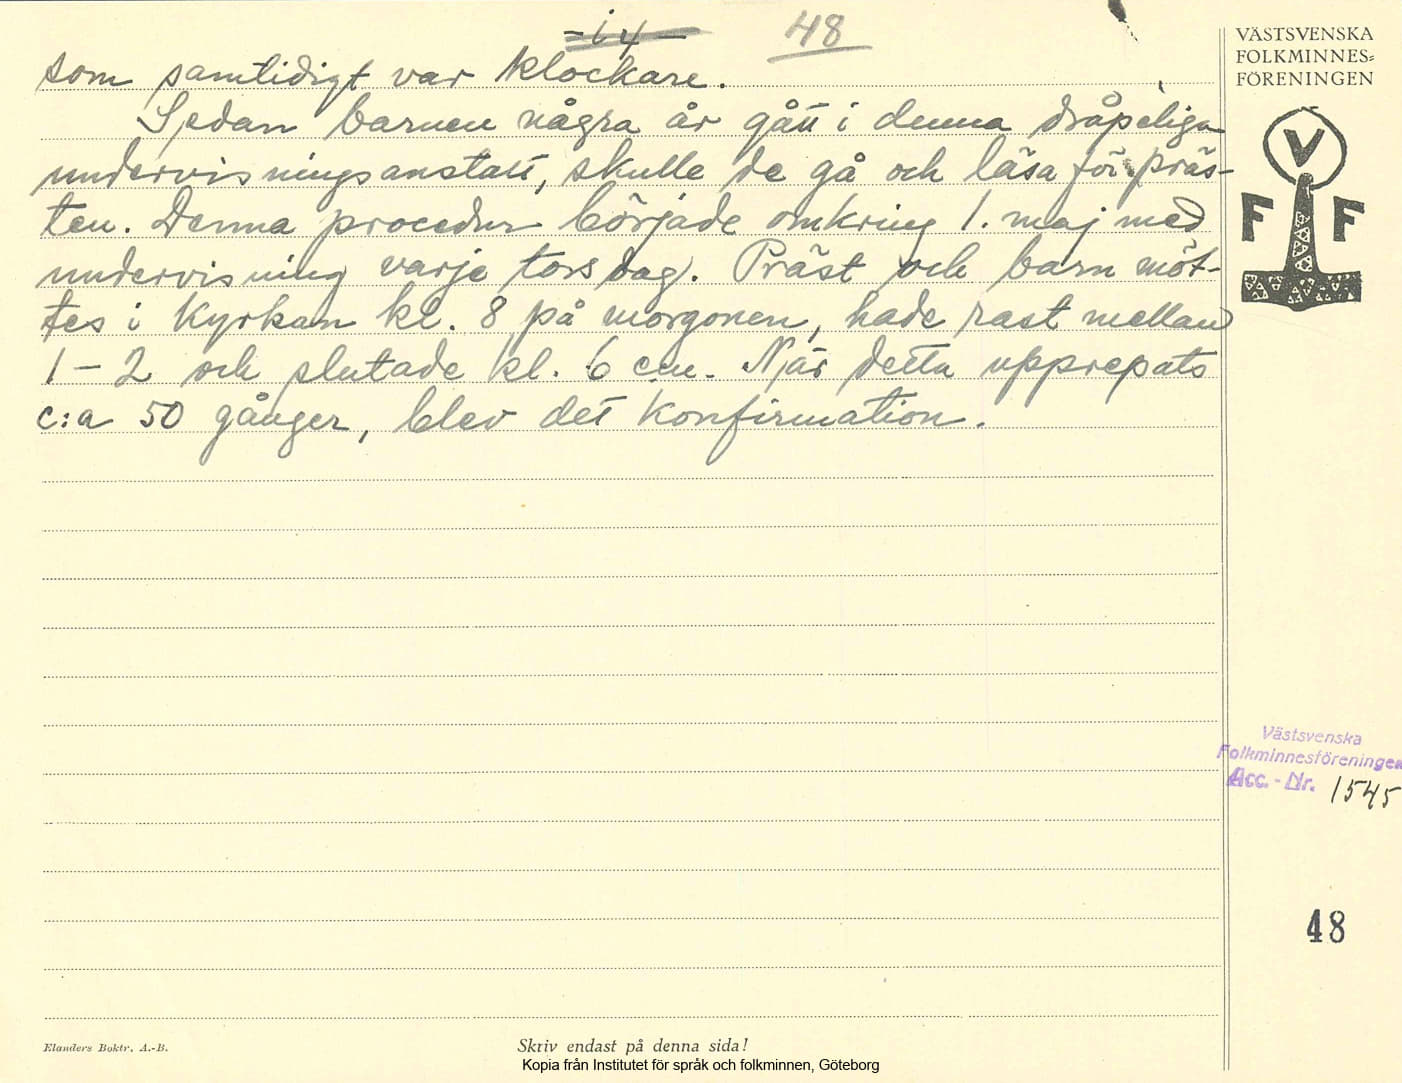 - i 4 -
48
som samtidigt var klockare.
Sedan barnen några år gått i denna dråpeliga
undervisningsanstalt, skulle de gå och läsa för präs-
ten. Denna procedur började omkring 1. maj med
undervisning varje torsdag. Präst och barn möt-
tes i kyrkan kl. 8 på morgonen, hade rast mellan
1 - 2 och slutade kl. 6 em. När detta upprepats
c:a 50 gånger, blev det konfirmation.
VÄSTSVENSKA
FOLKMINNES=
FÖRENINGEN
V
F F
Västsvenska
Folkminnesföreningen
Acc. - Nr. 1545
48
Elanders Boktr. A.-B.
Skriv endast på denna sida!
Kopia från Institutet för språk och folkminnen, Göteborg